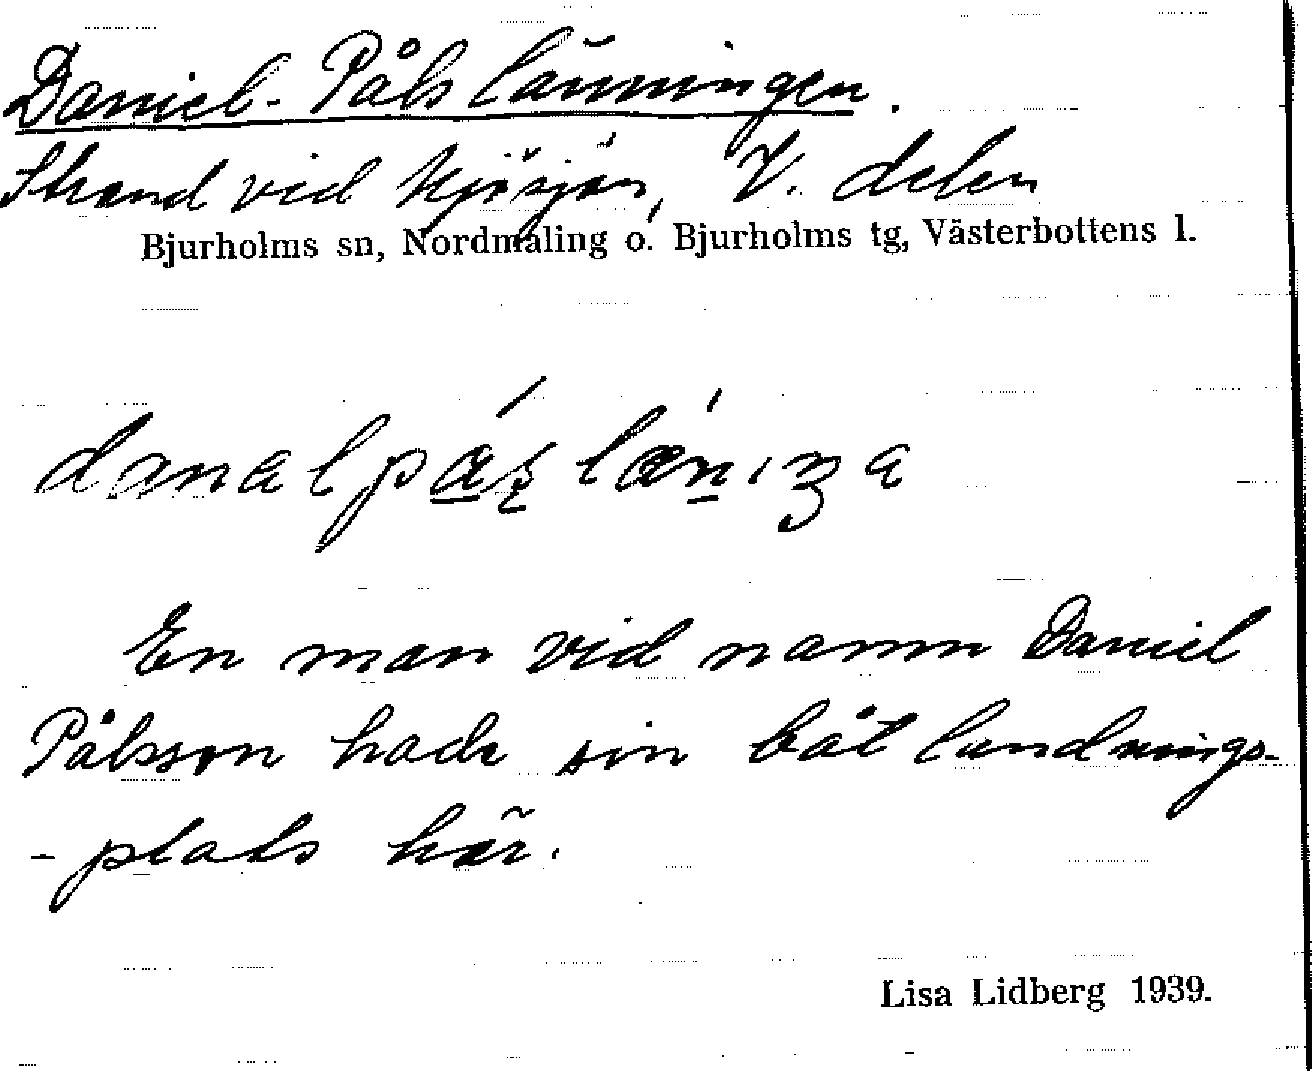 Daniel-Påls länningen.
Strand vid Mjösjön, V. delen
Bjurholms sn, Nordmaling o. Bjurholms tg, Västerbottens l.
En man vid namn Daniel
Pålsson hade sin båtlandnings-
-plats här.
Lisa Lidberg 1939.